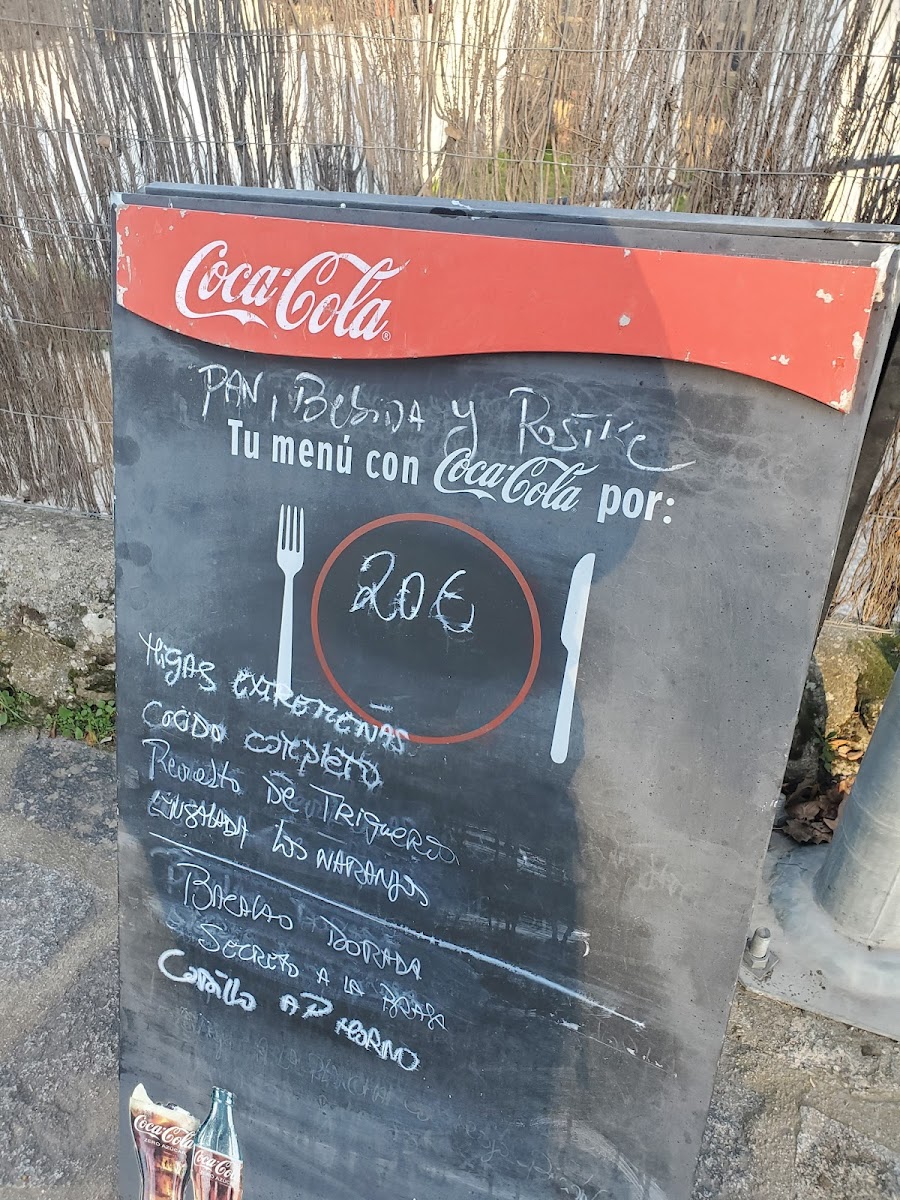 Coca-Cola
PAN, BEBIDA Y POSTRE
Tu menú con Coca-Cola por:
20€
MIGAS EXTREMEÑAS
COCIDO COMPLETO
Revuelto DE TRIGUEROS
ENSALADA LOS NARANJOS
BACALAO DORADA
SECRETO A LA BRASA
AL HORNO
Coca-Cola
ZERO AZÚCAR
Coca-Cola